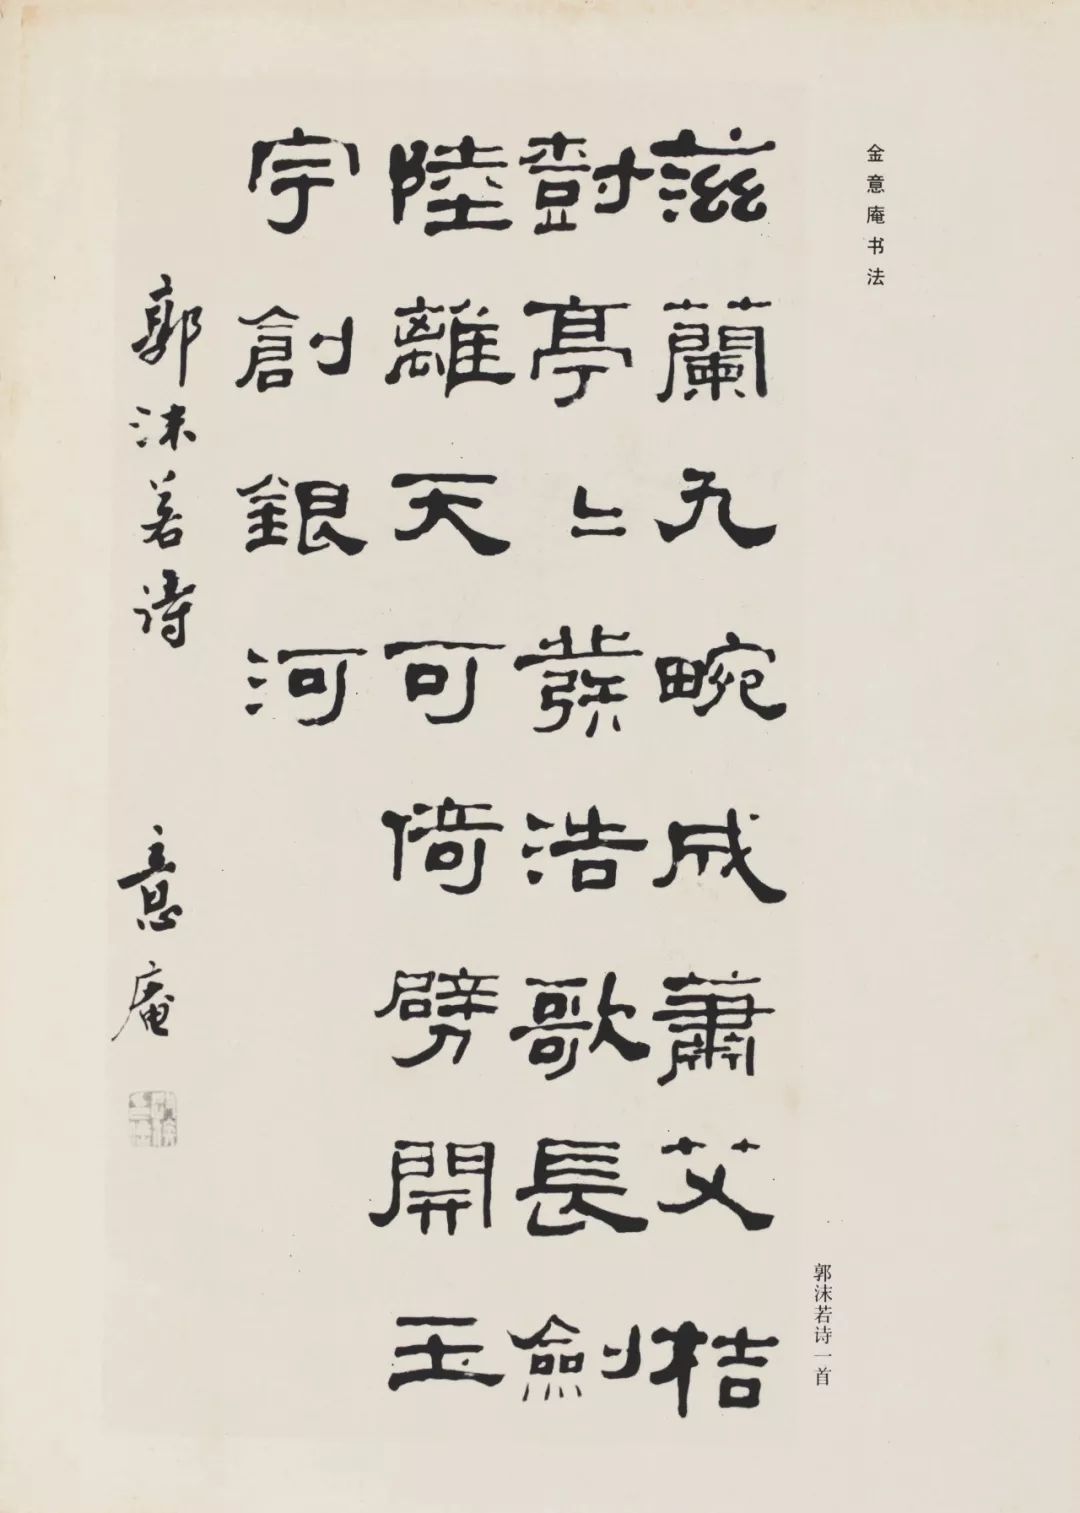 金意庵书法
滋蘭九畹成蕭艾桔
尌亭亭發浩歌長劍
陸離天可倚劈開玉
宇創銀河
郭沫若诗
意庵
郭沫若诗一首